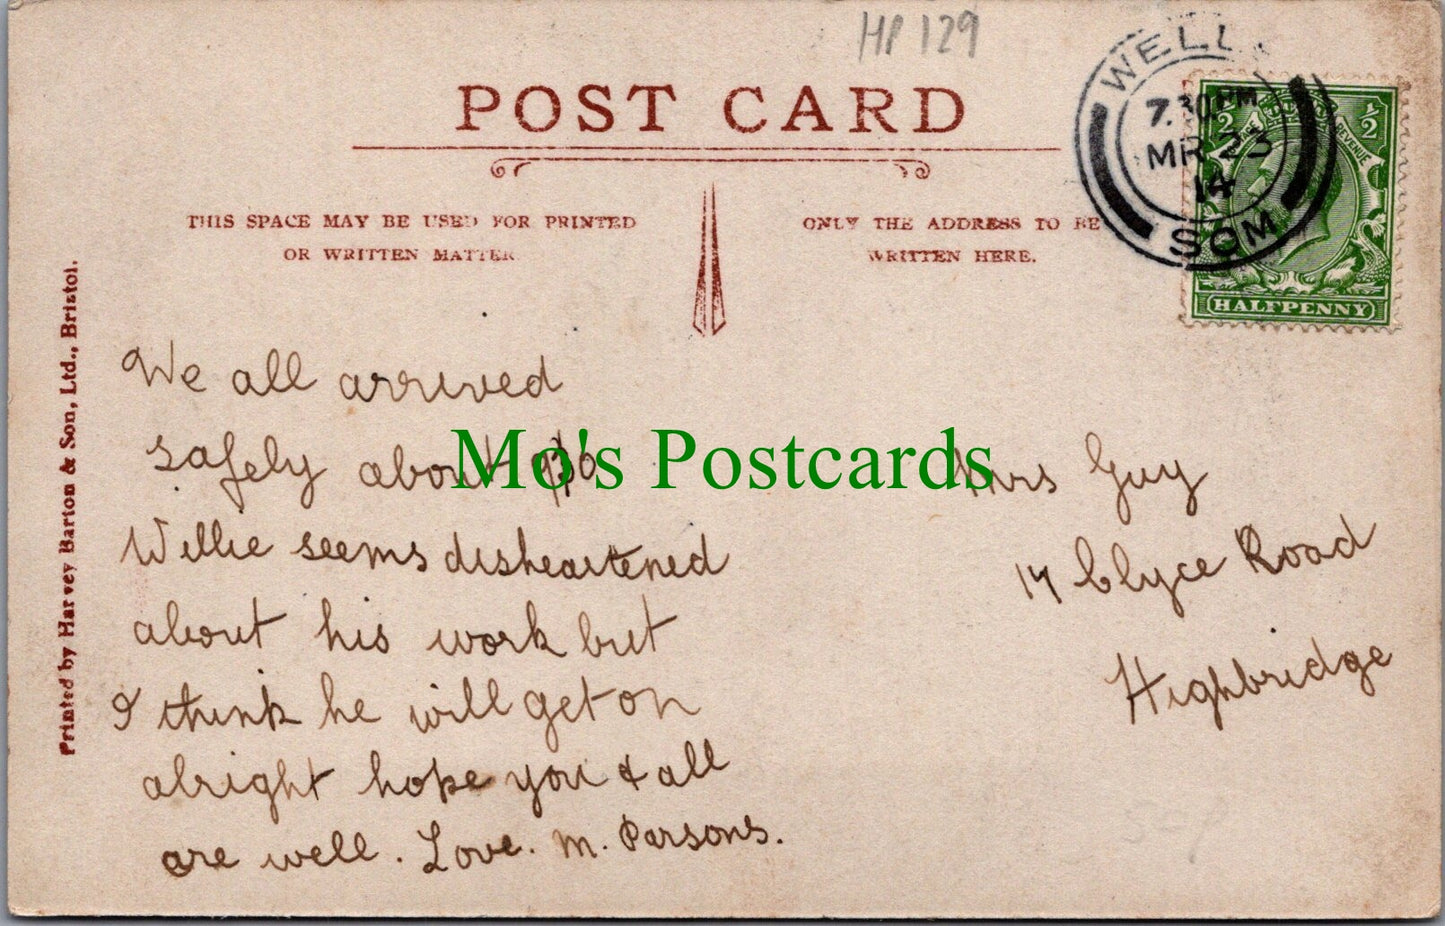 HP 129
POST CARD
THIS SPACE MAY BE USED FOR PRINTED
OR WRITTEN MATTER
ONLY THE ADDRESS TO BE
WRITTEN HERE.
WELL
7.30PM
MR 23
14
SOM
1/2 1/2
REVENUE
HALFPENNY
Printed by Harvey Barton & Son, Ltd., Bristol.
We all arrived
safely about
Willie seems disheartened
about his work but
I think he will get on
alright hope you & all
are well. Love. M. Parsons.
Mo's Postcards
Mrs Guy
Clyce Road
Highbridge